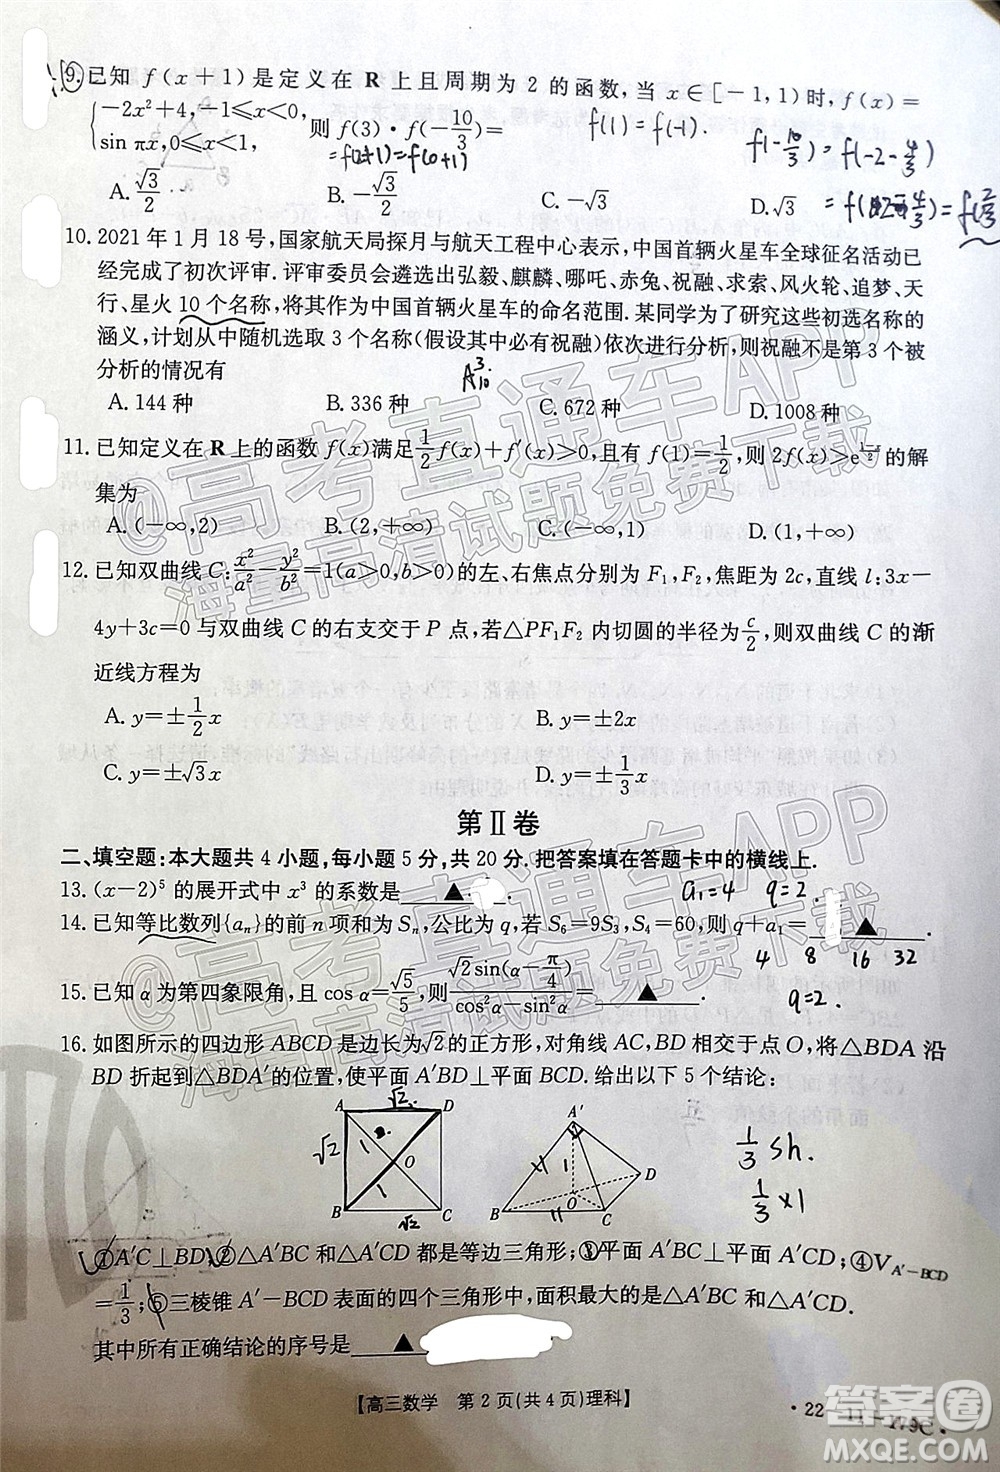 9. 已知 f(x+1)是定义在 R 上且周期为 2 的函数, 当 x∈[-1,1)时, f(x)=
{-2x²+4, -1≤x<0,
sin πx, 0≤x<1, 则 f(3)·f(-10/3)=
f(1)=f(-1).
f(-10/3)=f(-2-4/3)
=f(2+1)=f(0+1)
A. √3/2 B. -√3/2 C. -√3 D. √3
10. 2021 年 1 月 18 号, 国家航天局探月与航天工程中心表示, 中国首辆火星车全球征名活动已
经完成了初次评审. 评审委员会遴选出弘毅、麒麟、哪吒、赤兔、祝融、求索、风火轮、追梦、天
行、星火 10 个名称, 将其作为中国首辆火星车的命名范围. 某同学为了研究这些初选名称的
涵义, 计划从中随机选取 3 个名称(假设其中必有祝融)依次进行分析, 则祝融不是第 3 个被
分析的情况有
A³₁₀
A. 144 种 B. 336 种 C. 672 种 D. 1008 种
11. 已知定义在 R 上的函数 f(x)满足 1/2 f(x)+f′(x)>0, 且有 f(1)=1/2, 则 2f(x)>e^((1-x)/2) 的解
集为
A. (-∞,2) B. (2,+∞) C. (-∞,1) D. (1,+∞)
12. 已知双曲线 C: x²/a²-y²/b²=1(a>0,b>0)的左、右焦点分别为 F₁,F₂, 焦距为 2c, 直线 l:3x-
4y+3c=0 与双曲线 C 的右支交于 P 点, 若△PF₁F₂ 内切圆的半径为 c/2, 则双曲线 C 的渐
近线方程为
A. y=±1/2 x B. y=±2x
C. y=±√3x D. y=±1/3 x
第Ⅱ卷
二、填空题:本大题共 4 小题, 每小题 5 分, 共 20 分. 把答案填在答题卡中的横线上.
13. (x-2)⁵ 的展开式中 x³ 的系数是 ▲ .
a₁=4 q=2.
14. 已知等比数列{aₙ}的前 n 项和为 Sₙ, 公比为 q, 若 S₆=9S₃, S₄=60, 则 q+a₁= ▲ .
4 8 16 32
15. 已知 α 为第四象限角, 且 cos α=√5/5, 则 √2sin(α-π/4)/(cos²α-sin²α)= ▲ .
q=2.
16. 如图所示的四边形 ABCD 是边长为√2的正方形, 对角线 AC, BD 交于点 O, 将△BDA 沿
BD 折起到△BDA′的位置, 使平面 A′BD⊥平面 BCD. 给出以下 5 个结论:
√2
A D √2 O B C √2
A′ 1 O D B C
1/3 sh.
1/3 ×1
①A′C⊥BD; ②△A′BC 和△A′CD 都是等边三角形; ③平面 A′BC⊥平面 A′CD; ④V_{A′-BCD}
=1/3; ⑤三棱锥 A′-BCD 表面的四个三角形中, 面积最大的是△A′BC 和△A′CD.
其中所有正确结论的序号是 ▲
【高三数学 第 2 页(共 4 页)理科】
·22-11-179C·
@高考直通车APP
海量高清试题免费下载
@高考直通车APP
海量高清试题免费下载
答案圈
MXQE.COM